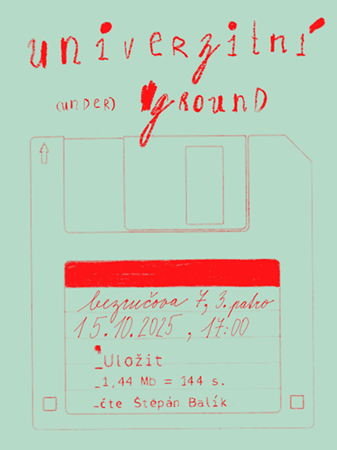 univerzitní
(UNDER) GROUND
bezručova 7, 3. patro
15.10.2025, 17:00
_Uložit
_1,44 Mb = 144 s.
_čte Štěpán Balík